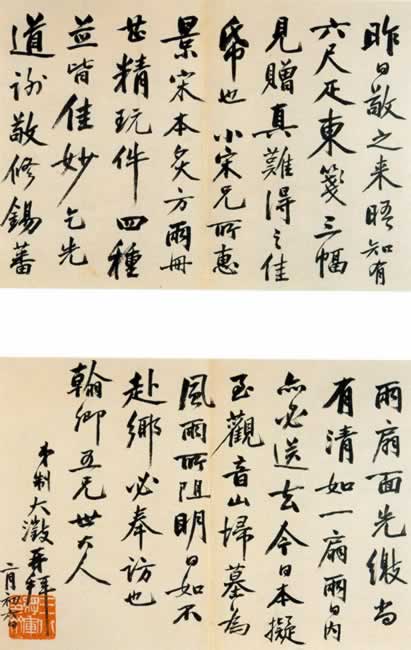 昨日敬之来晤知有
六尺疋東箋三幅
見贈真難得之佳
帋也小宋兄所惠
景宋本炙方兩冊
甚精玩件四種
並皆佳妙乞先
道謝敬修錫蕃
兩扇面先繳尚
有清如一扇兩日内
亦必送去今日本擬
至觀音山掃墓為
風雨所阻明日如不
赴鄉必奉訪也
翰卿五兄世大人
弟制大澂再拜
二月初六日